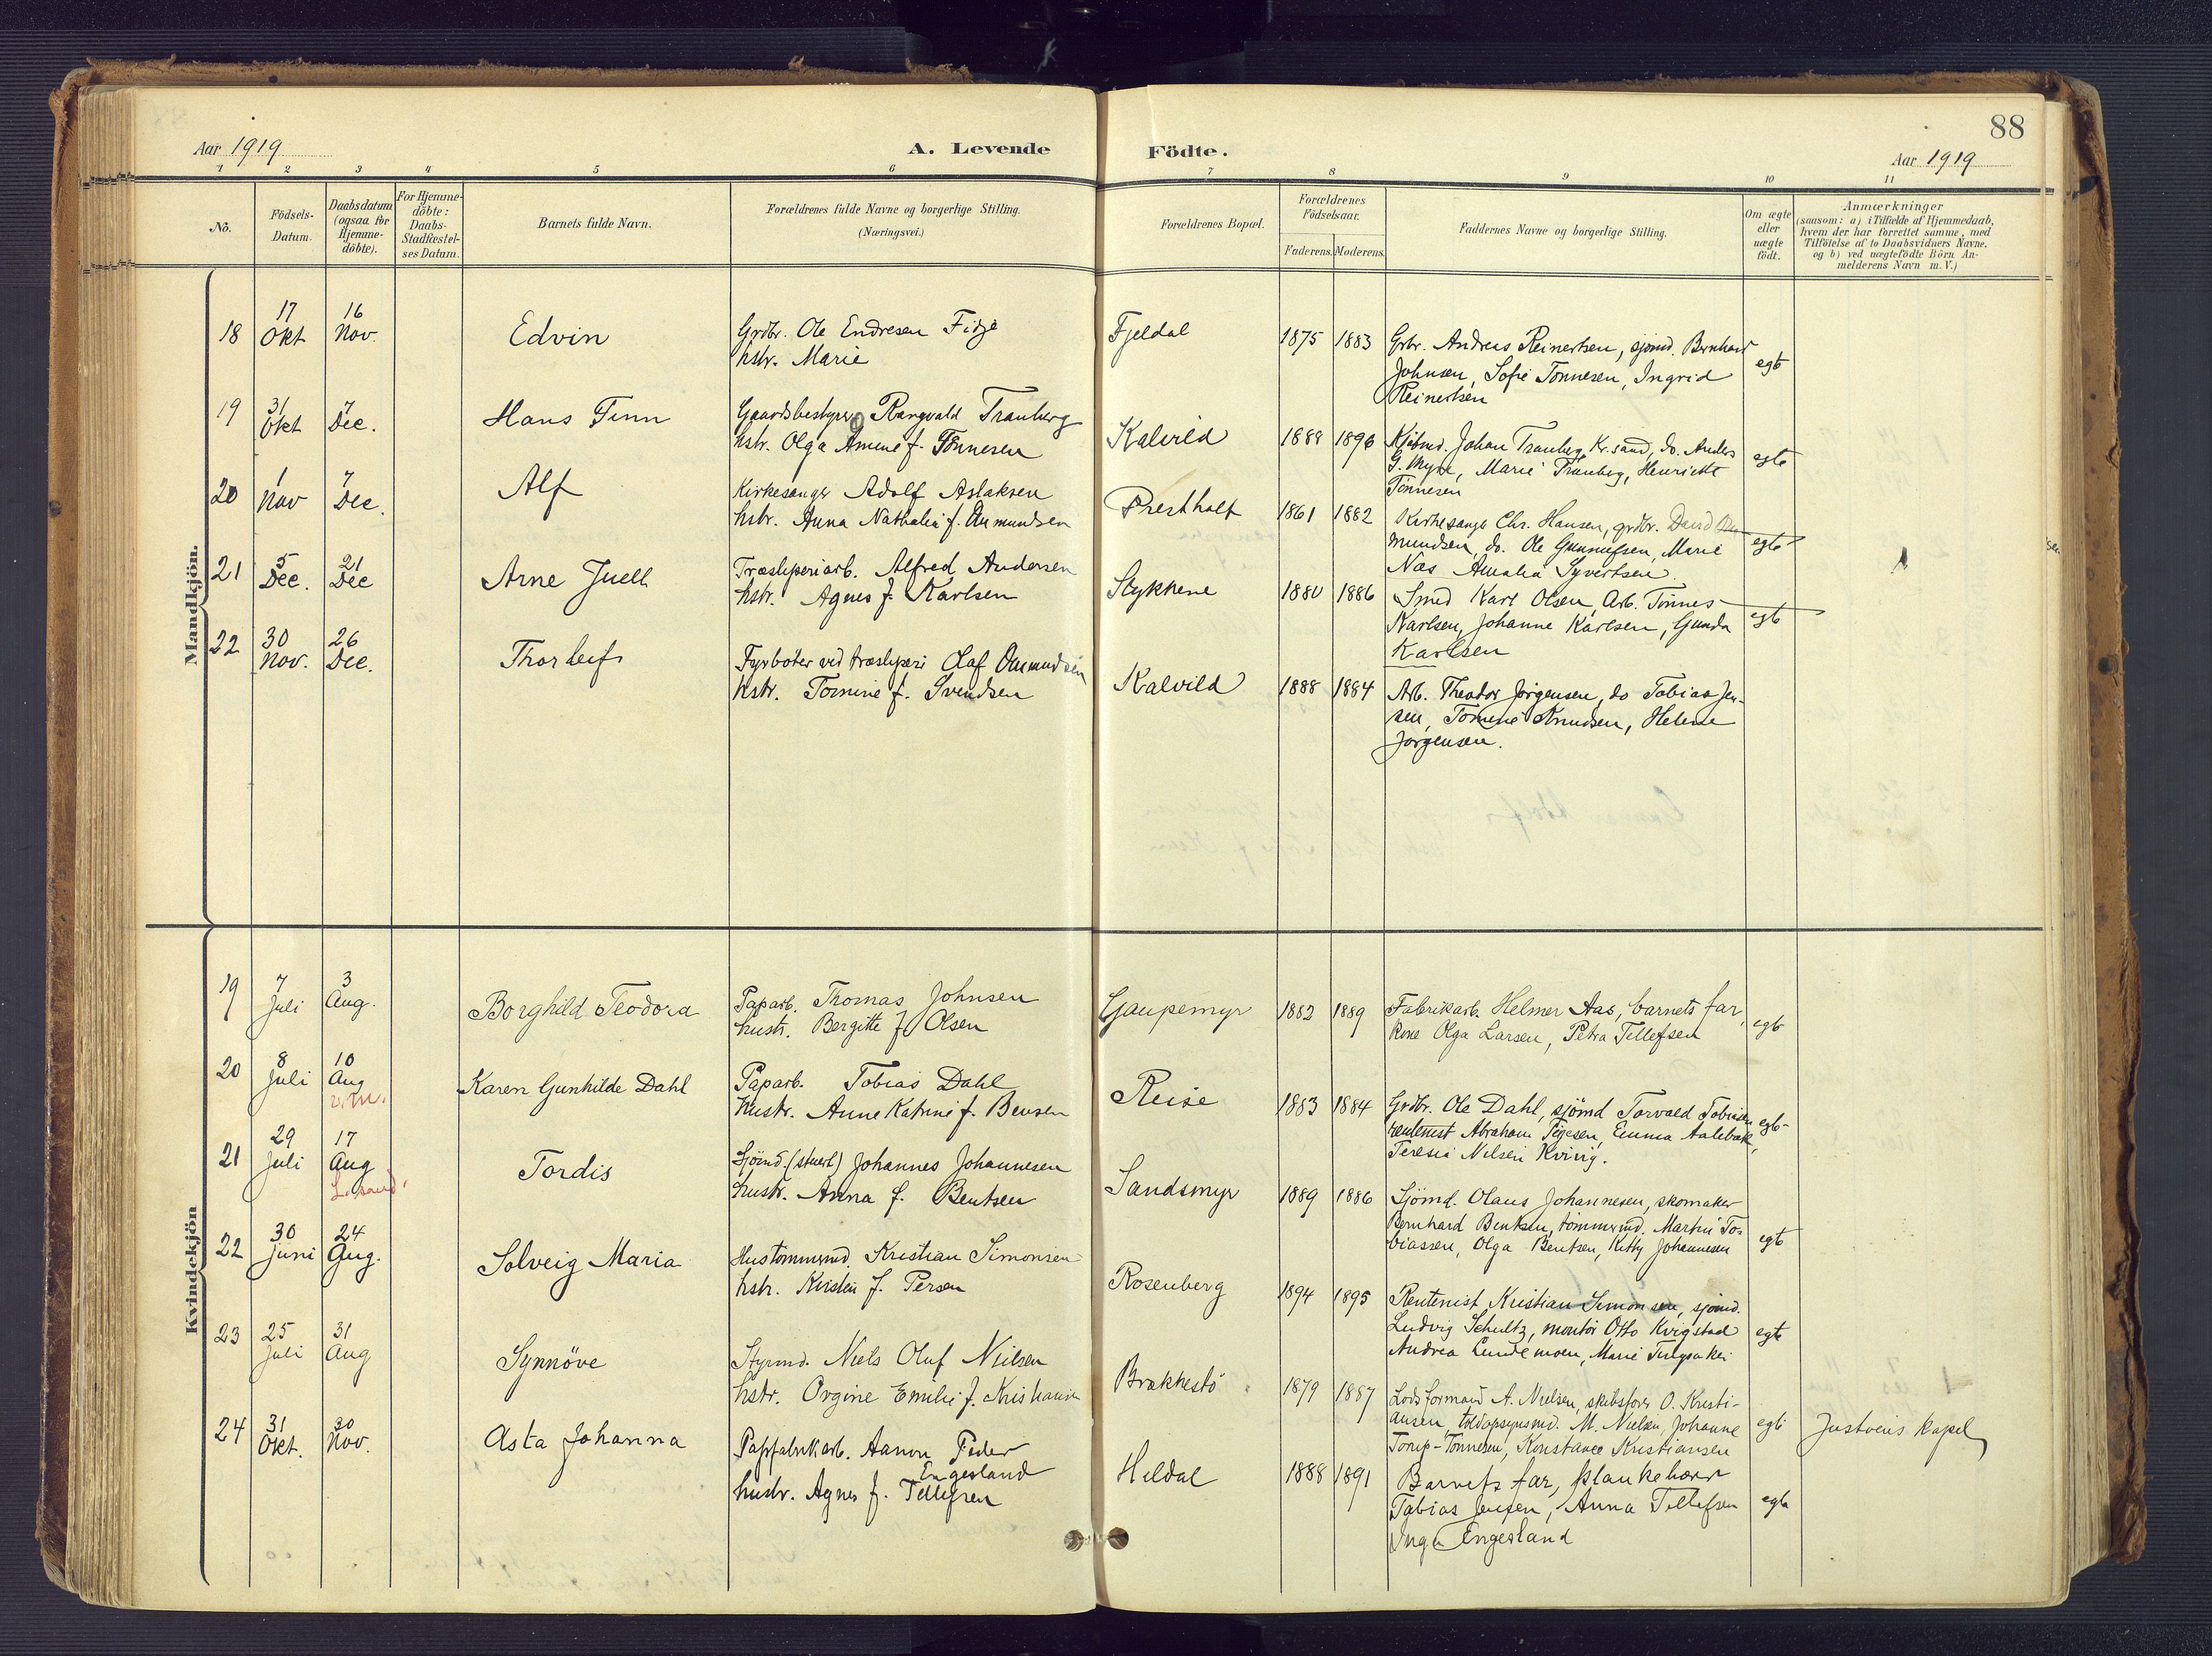 88
Aar 1919
A. Levende Födte.
Aar 1919
1 2 3 4 5 6 7 8 9 10 11
No.
Födsels-Datum.
Daabsdatum (ogsaa for Hjemme-döbte).
For Hjemme-döbte: Daabs-Stadfæstel-ses Datum.
Barnets fulde Navn.
Forældrenes fulde Navne og borgerlige Stilling.
(Næringsvei.)
Forældrenes Bopæl.
Forældrenes Födselsaar.
Faderens. Moderens.
Faddernes Navne og borgerlige Stilling.
Om ægte eller uægte födt.
Anmærkninger
(saasom: a) i Tilfælde af Hjemmedaab,
hvem der har forrettet samme, med
Tilföielse af to Daabsvidners Navne,
og b) ved uægtefödte Börn An-
melderens Navn m. V.)
Mandkjön.
18 17 Okt 16 Nov. Edvin Grdbr. Ole Endresen Fidje
hstr. Marie
Fjeldal 1875 1883 Grbr. Andreas Reinertsen, sjömd. Bernhard
Johnsen, Sofie Tönnesen, Ingrid
Reinertsen
egte
19 31 Okt 7 Dec. Hans Finn Gaardsbestyrer Rangvald Tranberg
hstr. Olga Amine f. Tönnesen
Kalvild 1888 1896 Kjöbmd. Johan Tranberg Kr.sand, do. Anders
G. Myhre, Marie Tranberg, Henriette
Tönnesen
egte
20 1 Nov 7 Dec. Alf Kirkesanger Adolf Aslaksen
hstr. Anna Nathalie f. Aamundsen
Prestholt 1861 1882 Kirkesanger Chr. Hansen, grdbr. David Aa
mundsen, do. Ole Gunnufsen, Marie
Næs Amalia Syvertsen.
egte
21 5 Dec. 21 Dec Arne Juell Træsliperiarb. Alfred Andersen
hstr. Agnes f. Karlsen
Stykkene 1880 1886 Smed Karl Olsen, Arb. Tönnes
Karlsen, Johanne Karlsen, Gunda
Karlsen
egte
22 30 Nov. 26 Dec. Thorleif Fyrböter ved træsliperi Olaf Aamundsen
hstr. Tomine f. Svendsen
Kalvild 1888 1884 Arb. Theodor Jörgensen, do Tobias Jen-
sen, Tomine Knudsen, Helene
Jörgensen.
Kvindekjön
19 7 Juli 3 Aug. Borghild Teodora Paparb. Thomas Johnsen
hustr. Bergitte f. Olsen
Gaupemyr 1882 1889 Fabrikarb. Helmer Aas, barnets far,
kone Olga Larsen, Petra Tellefsen
egte
20 8 Juli 10 Aug v.M. Karen Gunhilde Dahl Paparb. Tobias Dahl
hustr. Anne Katrine f. Bensen
Reise 1883 1884 Grdbr. Ole Dahl, sjömd Torvald Tobiasen
rentenist Abraham Terjesen, Emma Aalebæk,
Teresia Nilsen Kvivig.
egte
21 29 Juli 17 Aug L.sand Tordis Sjömd. (stuert) Johannes Johannesen
hustr. Anna f. Bentsen
Sandsmyr 1889 1886 Sjömd. Olaus Johannesen, skomaker
Bernhard Bentsen, tömmermd. Martin To-
biassen, Olga Bentsen, Kitty Johannesen
egte
22 30 Juni 24 Aug. Solveig Maria Hustömmermd. Kristian Simonsen
hstr. Kirstin f. Persen
Rosenberg 1894 1895 Rentenist Kristian Simonsen, sjömd.
Ludvig Schultz, montör Otto Kvigstad
Andrea Lundemoen, Marie
egte
23 25 Juli 31 Aug Synnöve Styrmd. Niels Oluf Nielsen
hstr. Orgine Emilie f. Kristiansen
Brækkestö 1879 1887 Lodsformand A. Nielsen, skibsförer O. Kristi-
ansen, toldopsynsmd. M. Nielsen, Johanne
Torup-Tönnesen, Konstance Kristiansen
egte Justviks kapel
24 31 Okt. 30 Nov. Asta Johanna Papfabrikarb. Aanon Peder
Engesland
hustr. Agnes f. Tellefsen
Heldal 1888 1891 Barnets far, plankebærer
Tobias Jensen, Anna Tellefsen
Inga Engesland
egte